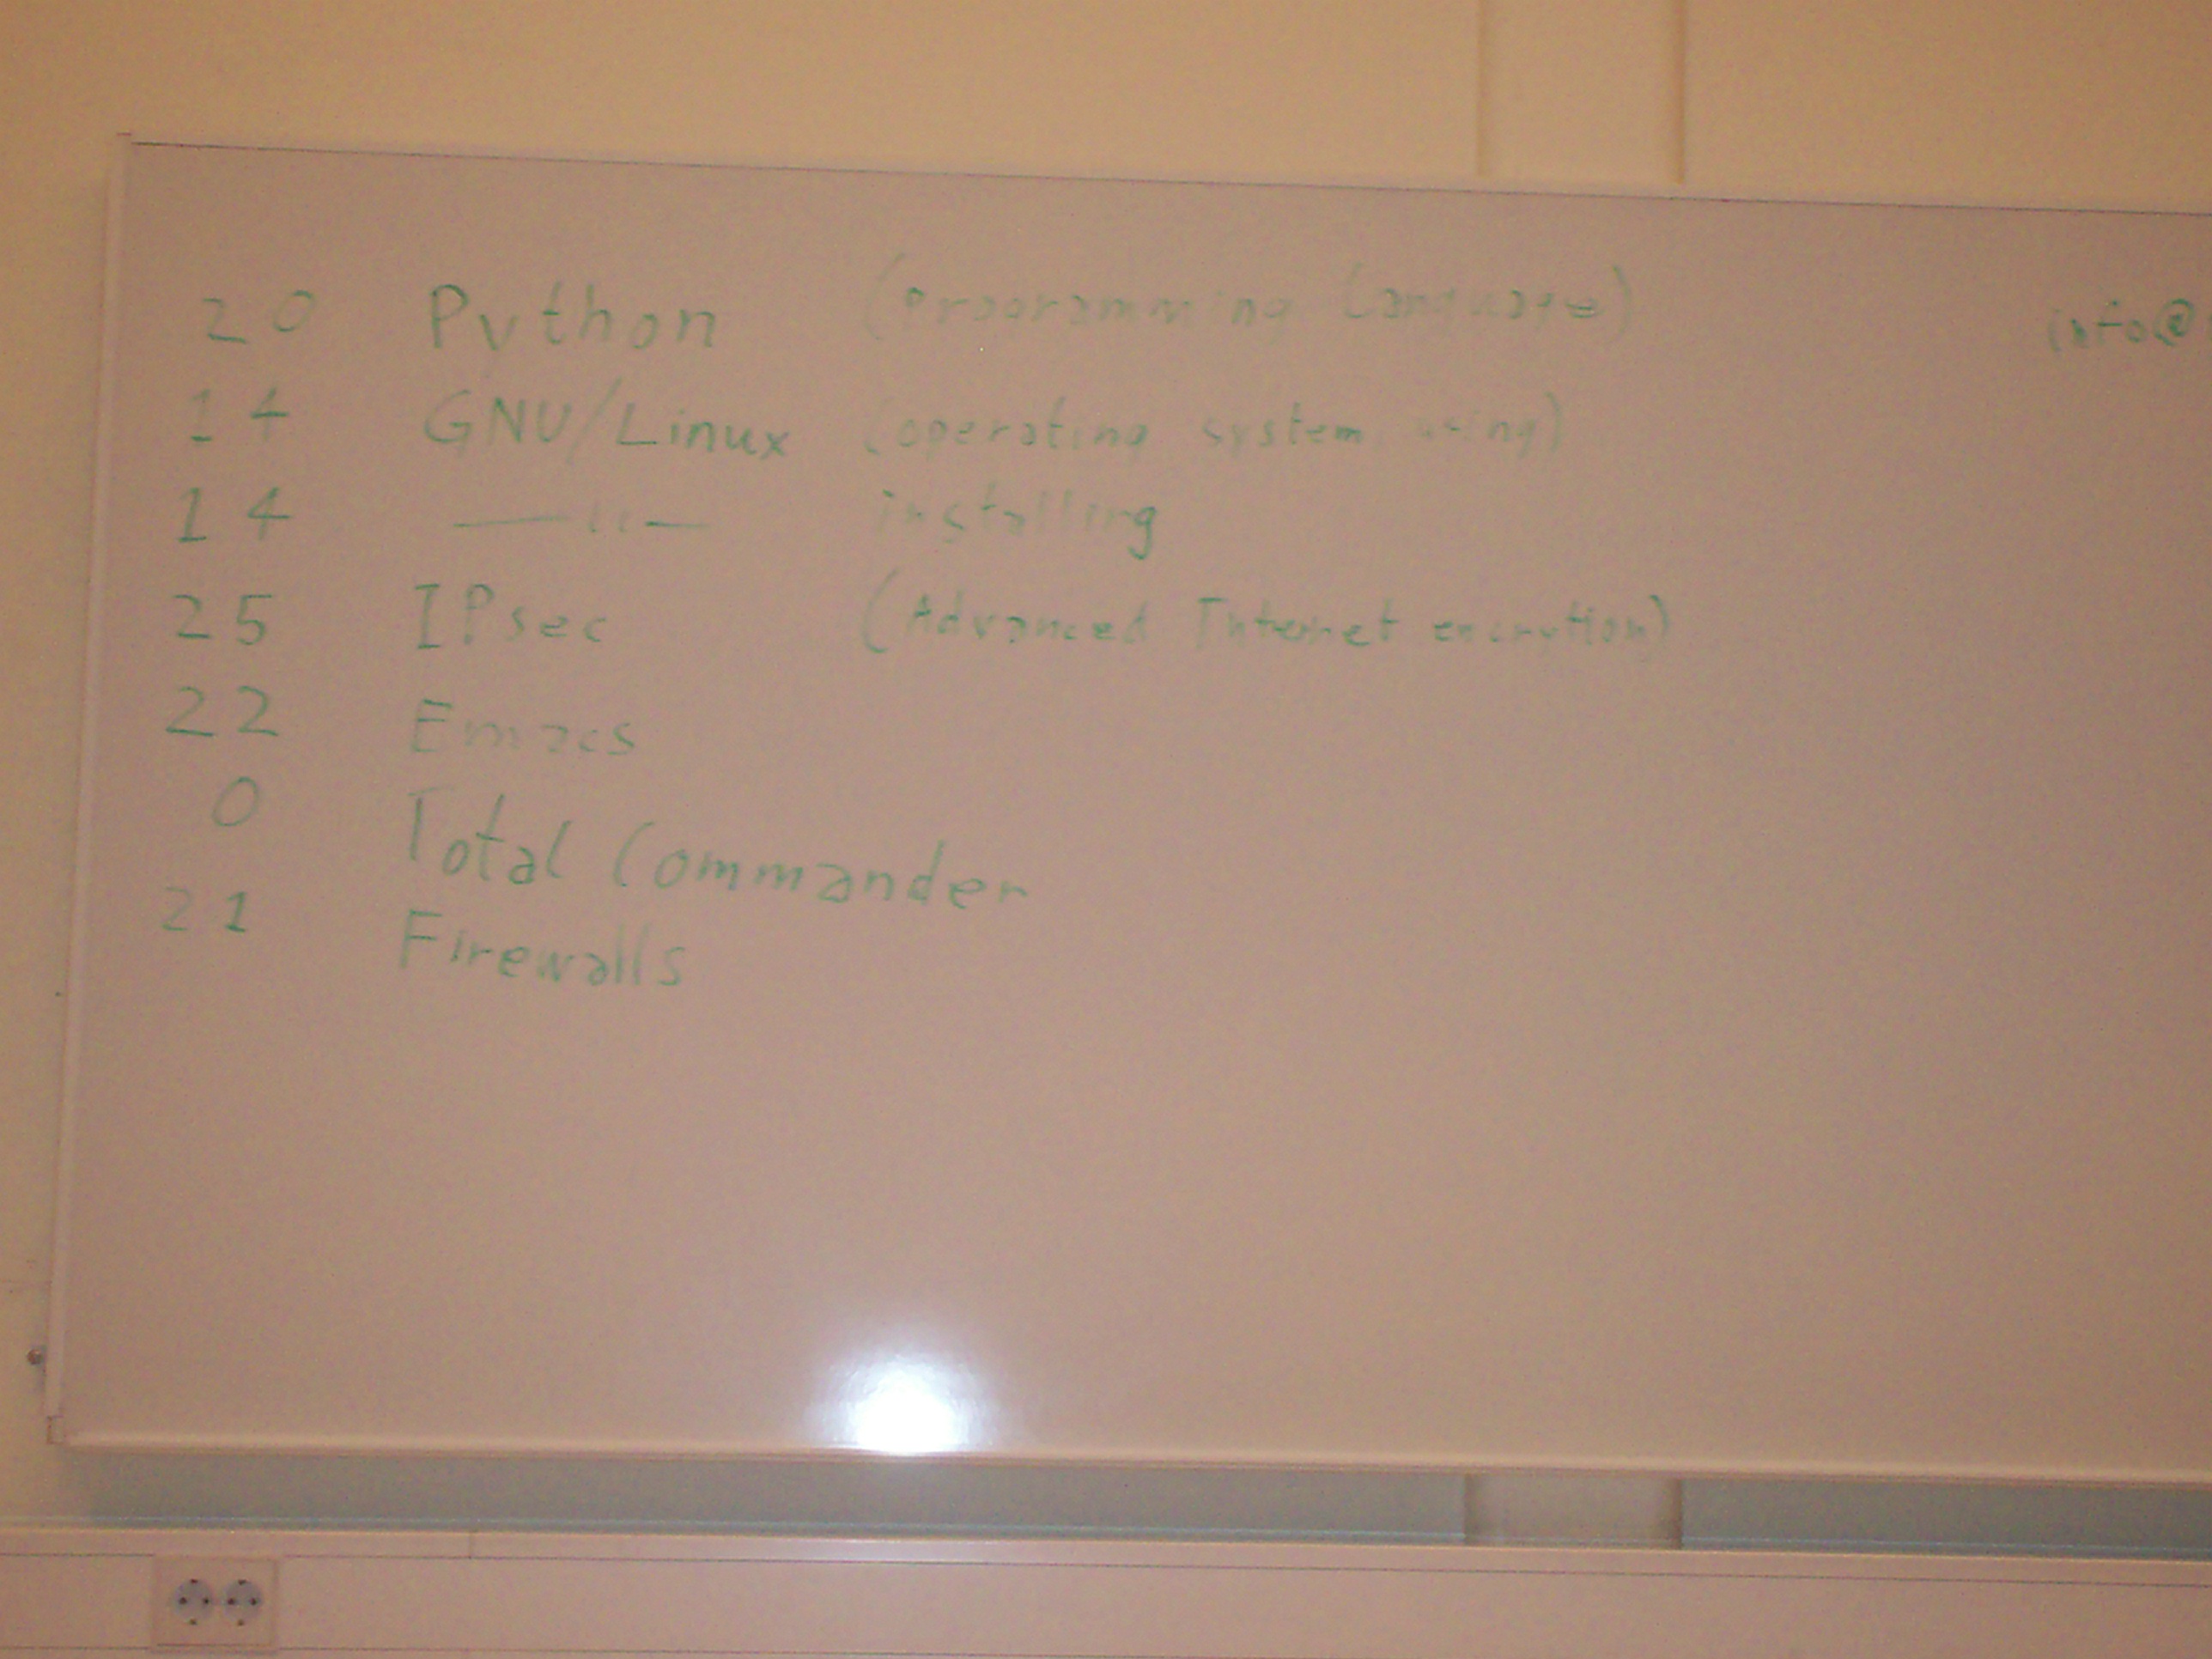 20 Python (programming language)
14 GNU/Linux (operating system using)
14 —"— installing
25 IPsec (Advanced Internet encrytion)
22 Emacs
0 Total Commander
21 Firewalls
info@